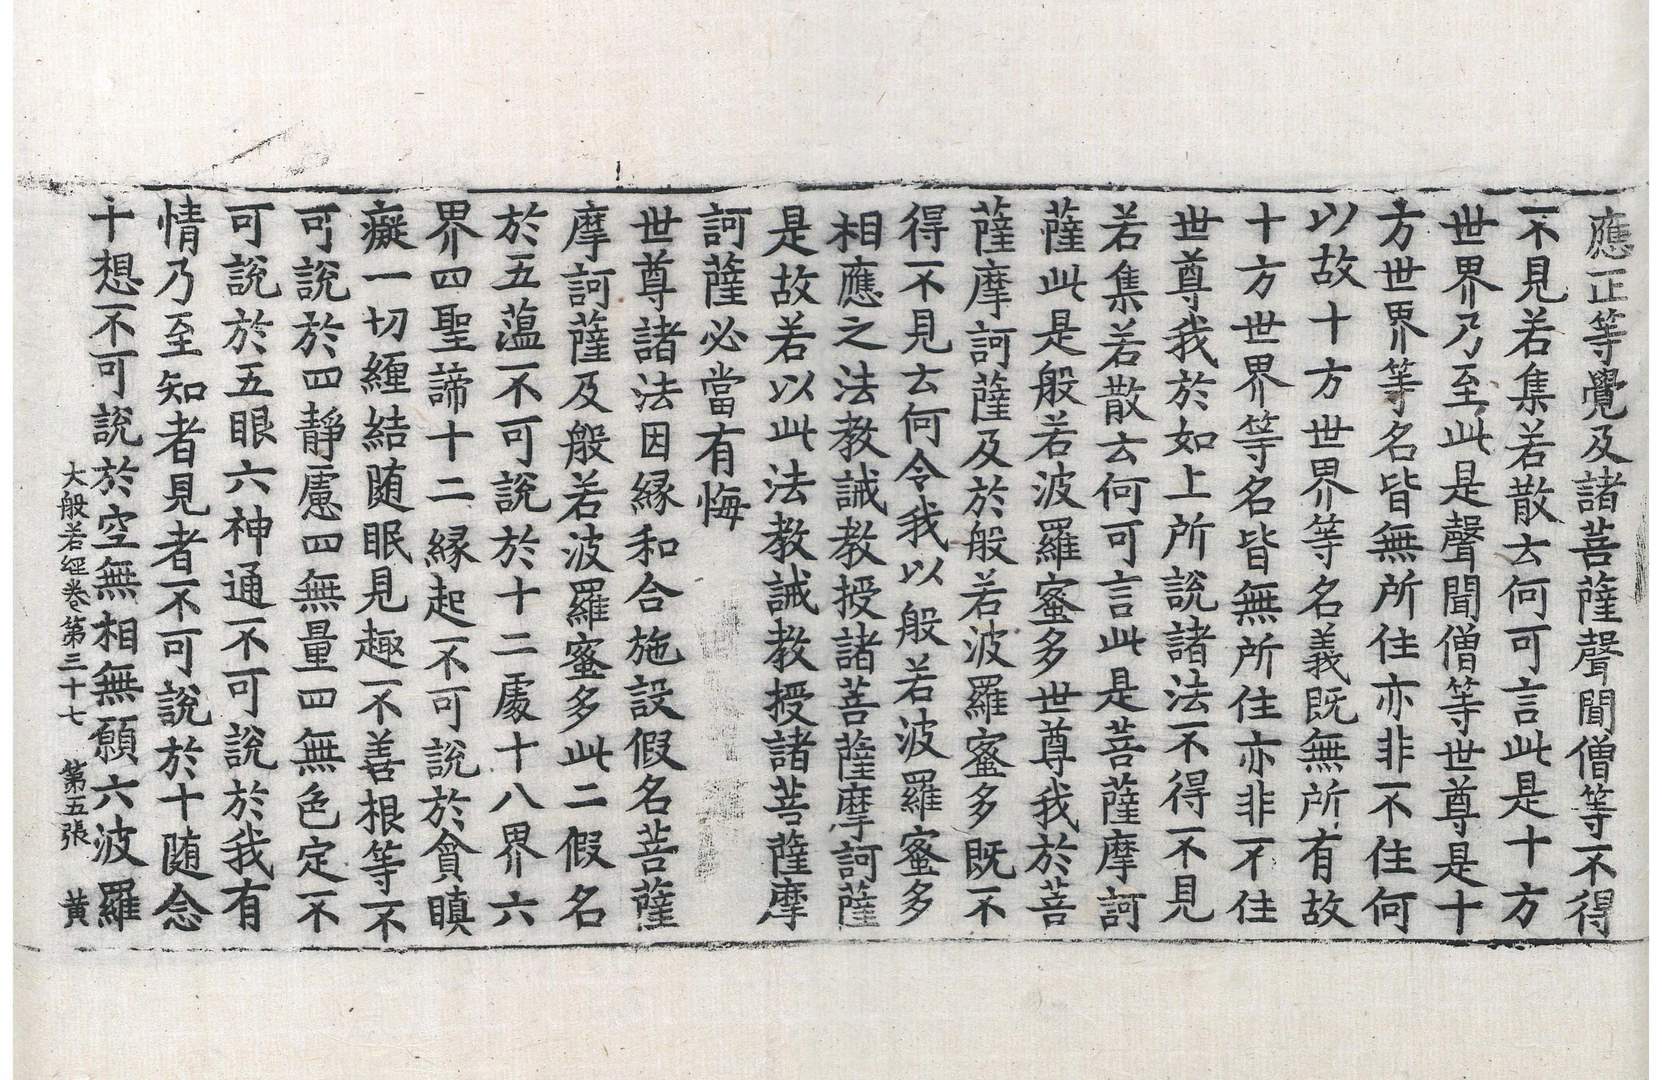 應正等覺及諸菩薩聲聞僧等不得
不見若集若散云何可言此是十方
世界乃至此是聲聞僧等世尊是十
方世界等名皆無所住亦非不住何
以故十方世界等名義既無所有故
十方世界等名皆無所住亦非不住
世尊我於如上所說諸法不得不見
若集若散云何可言此是菩薩摩訶
薩此是般若波羅蜜多世尊我於菩
薩摩訶薩及於般若波羅蜜多既不
得不見云何令我以般若波羅蜜多
相應之法教誡教授諸菩薩摩訶薩
是故若以此法教誡教授諸菩薩摩
訶薩必當有悔
世尊諸法因緣和合施設假名菩薩
摩訶薩及般若波羅蜜多此二假名
於五薀不可說於十二處十八界六
界四聖諦十二緣起不可說於貪瞋
癡一切纏結随眠見趣不善根等不
可說於四靜慮四無量四無色定不
可說於五眼六神通不可說於我有
情乃至知者見者不可說於十随念
十想不可說於空無相無願六波羅
大般若經卷第三十七 第五張 黃